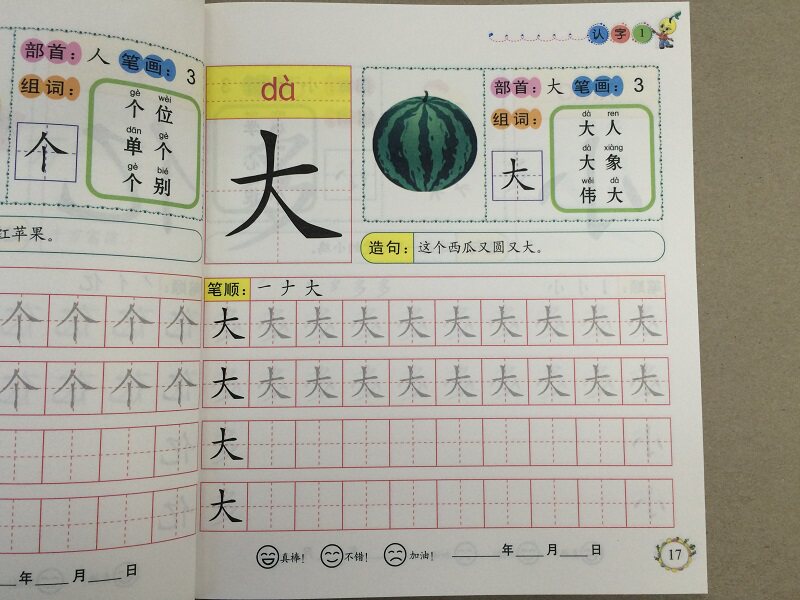 部首：人 笔画：3
组词：
gè wèi
个位
dān gè
单个
gè bié
个别
个
红苹果。
个 个 个 个
个 个 个 个
年 月 日
认字1
dà
大
部首：大 笔画：3
组词：
dà ren
大人
dà xiàng
大象
wěi dà
伟大
大
造句：这个西瓜又圆又大。
笔顺：一 ナ 大
大 大 大 大 大 大 大 大 大
大 大 大 大 大 大 大 大 大
大
大
真棒！ 不错！ 加油！ 年 月 日
17